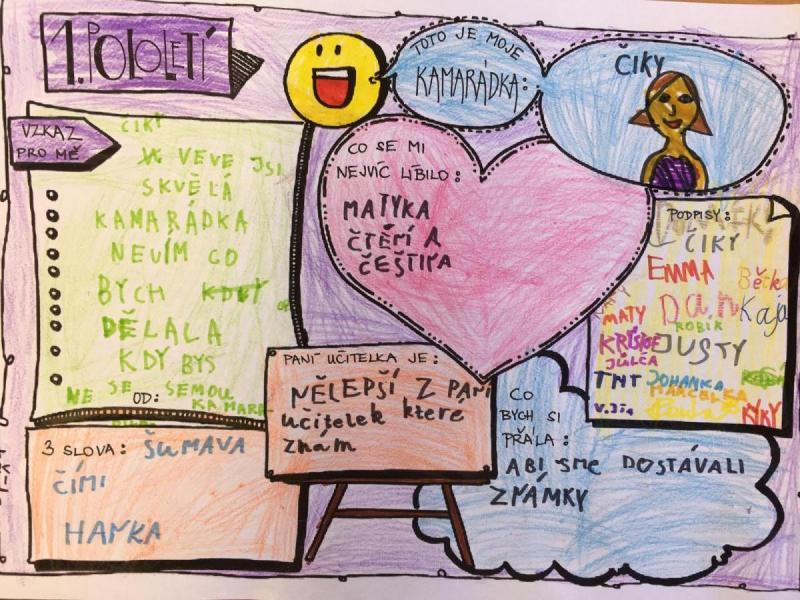 1. POLOLETÍ
TOTO JE MOJE
KAMARÁDKA:
ČIKY
VZKAZ
PRO MĚ
ČIKY
VEVE JSI
SKVĚLÁ
KAMARÁDKA
NEVÍM CO
BYCH KDBY
DĚLALA
KDY BYS
NE SE SEMOU
KA.MARA
OD:
CO SE MI
NEJVÍC LÍBILO:
MATYKA
ČTĚMÍ A
ČEŠTINA
PODPISY:
ČIKY
EMMA
Bětka
MATY
Dan
Kaja
ROBIK
JUSTY
JŮLČA
TNT
JOHANKA
MARCELKA
KYKY
3 SLOVA: ŠUMAVA
ČÍMI
HAMKA
PANÍ UČITELKA JE:
NĚLEPŠÍ Z PAMÍ
učitelek ktere
znám
CO
BYCH SI
PŘÁLA:
ABI SME DOSTÁVALI
ZMÁMKY